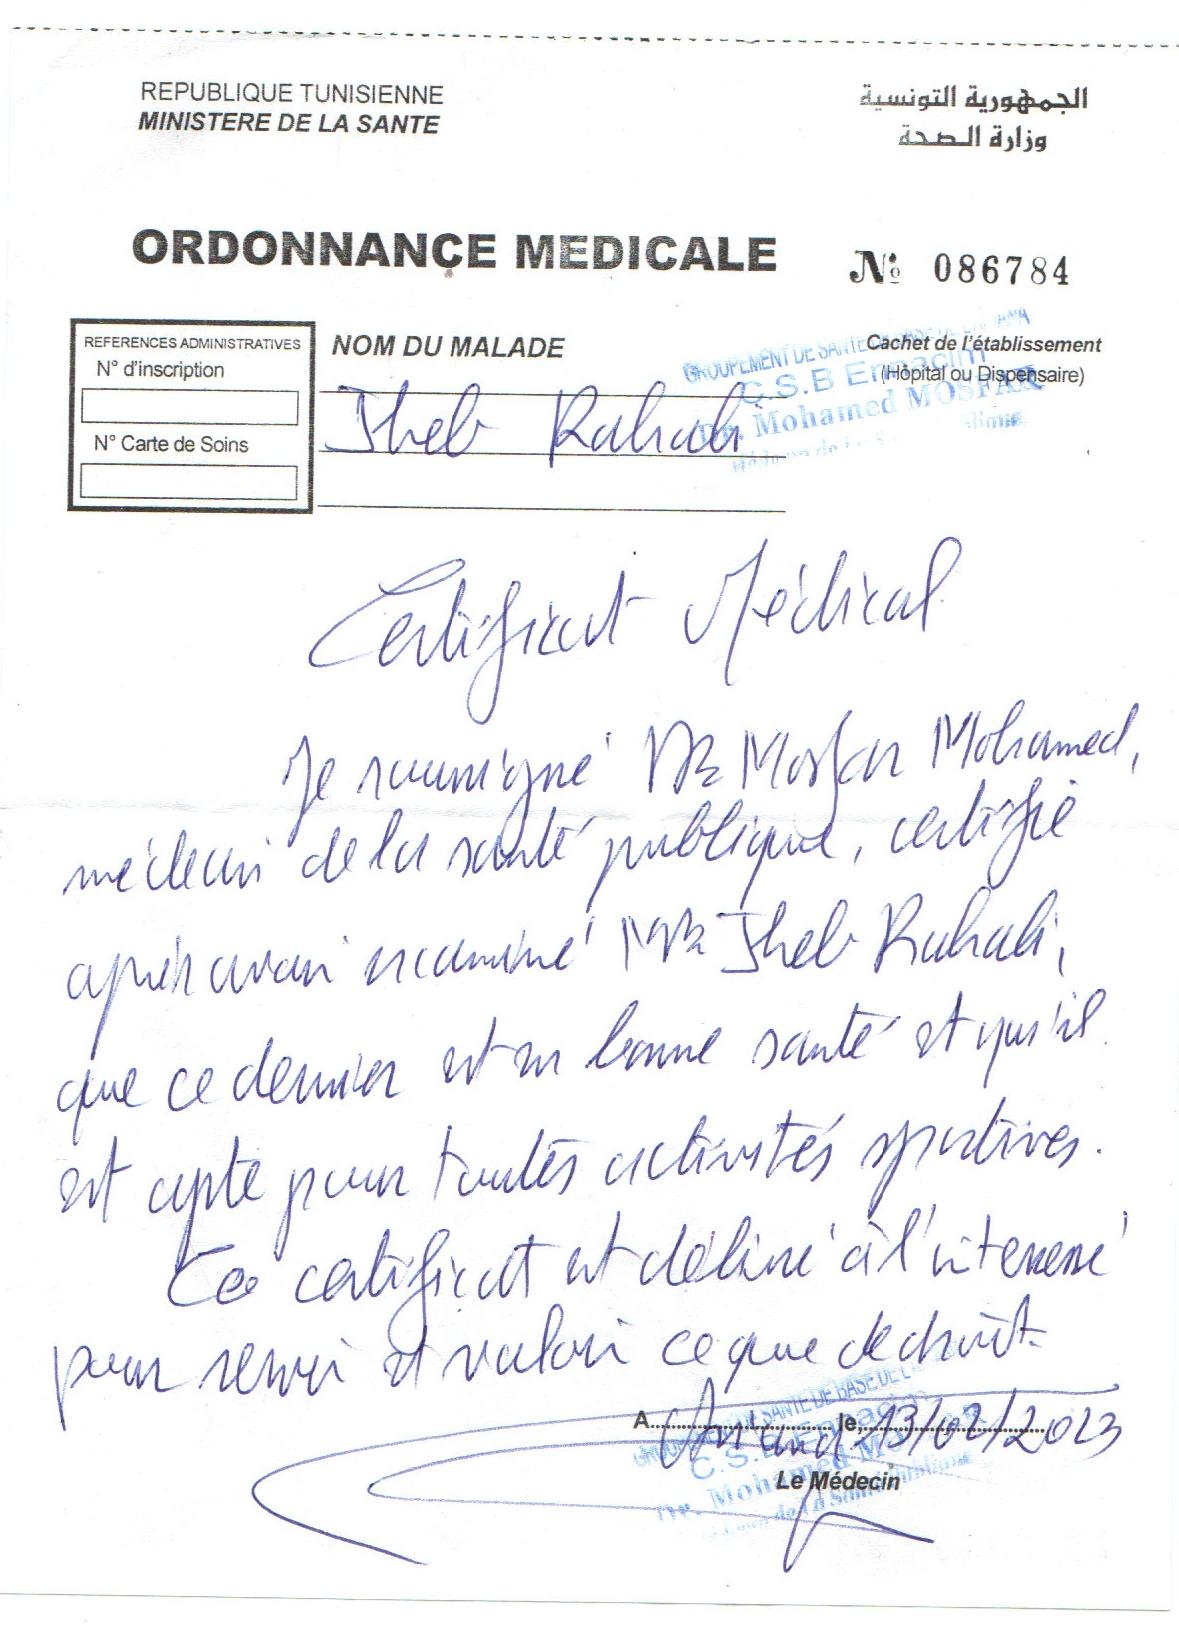 REPUBLIQUE TUNISIENNE
MINISTERE DE LA SANTE
الجمهورية التونسية
وزارة الصحة
ORDONNANCE MEDICALE
№ 086784
REFERENCES ADMINISTRATIVES
N° d'inscription
N° Carte de Soins
NOM DU MALADE
Iheb Rahali
Cachet de l'établissement
(Hôpital ou Dispensaire)
GROUPEMENT DE SANTE DE BASE DE
C.S.B Ennacim
Dr. Mohamed MOSFAR
Certificat Médical
Je soussigné DR Mosfar Mohamed,
médecin de la santé publique, certifie
après avoir examiné MR Iheb Rahali,
que ce dernier est en bonne santé et qu'il
est apte pour toutes activités sportives.
Ce certificat est délivré à l'intéressé
pour servir et valoir ce que de droit.
A le, 13/02/2023
Le Médecin
GROUPEMENT DE SANTE DE BASE DE
C.S.B Ennacim
Dr. Mohamed